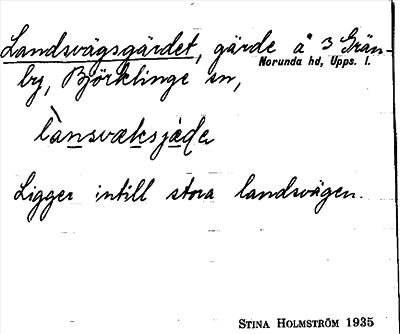 Landsvägsgärdet, gärde å 3 Grän-
Norunda hd, Upps. l.
by, Björklinge sn,
lànsvæksjæde
Ligger intill stora landsvägen.
STINA HOLMSTRÖM 1935